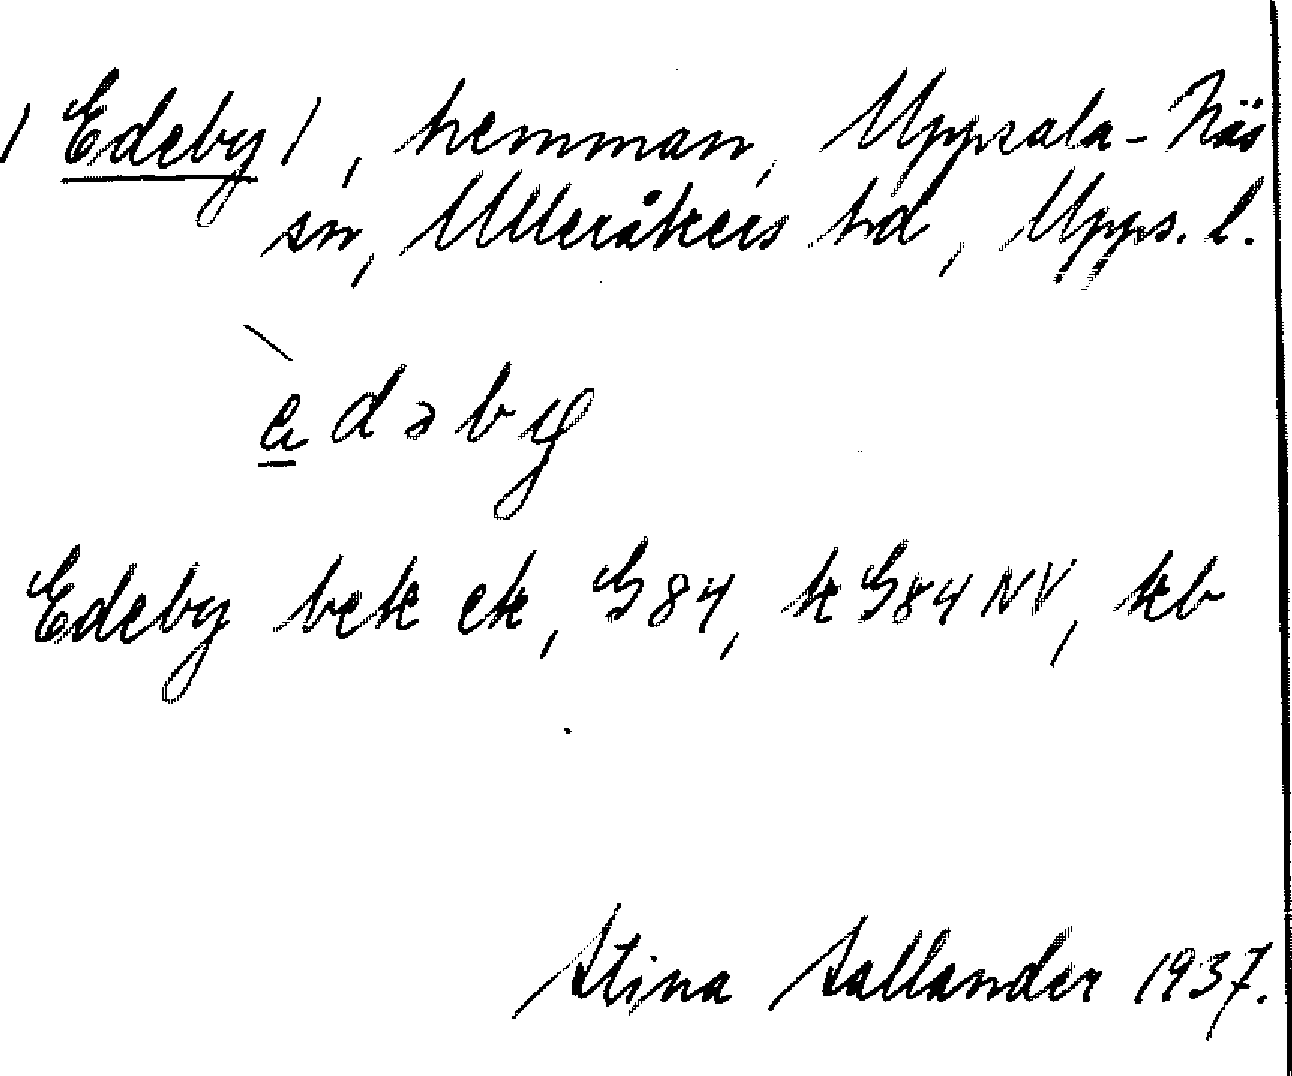 / Edeby /, hemman, Uppsala-Näs
sn, Ulleråkers hd, Upps. l.
è̱dəby
Edeby bek ek, G84, k G84 NV, kb
Stina Sallander 1937.